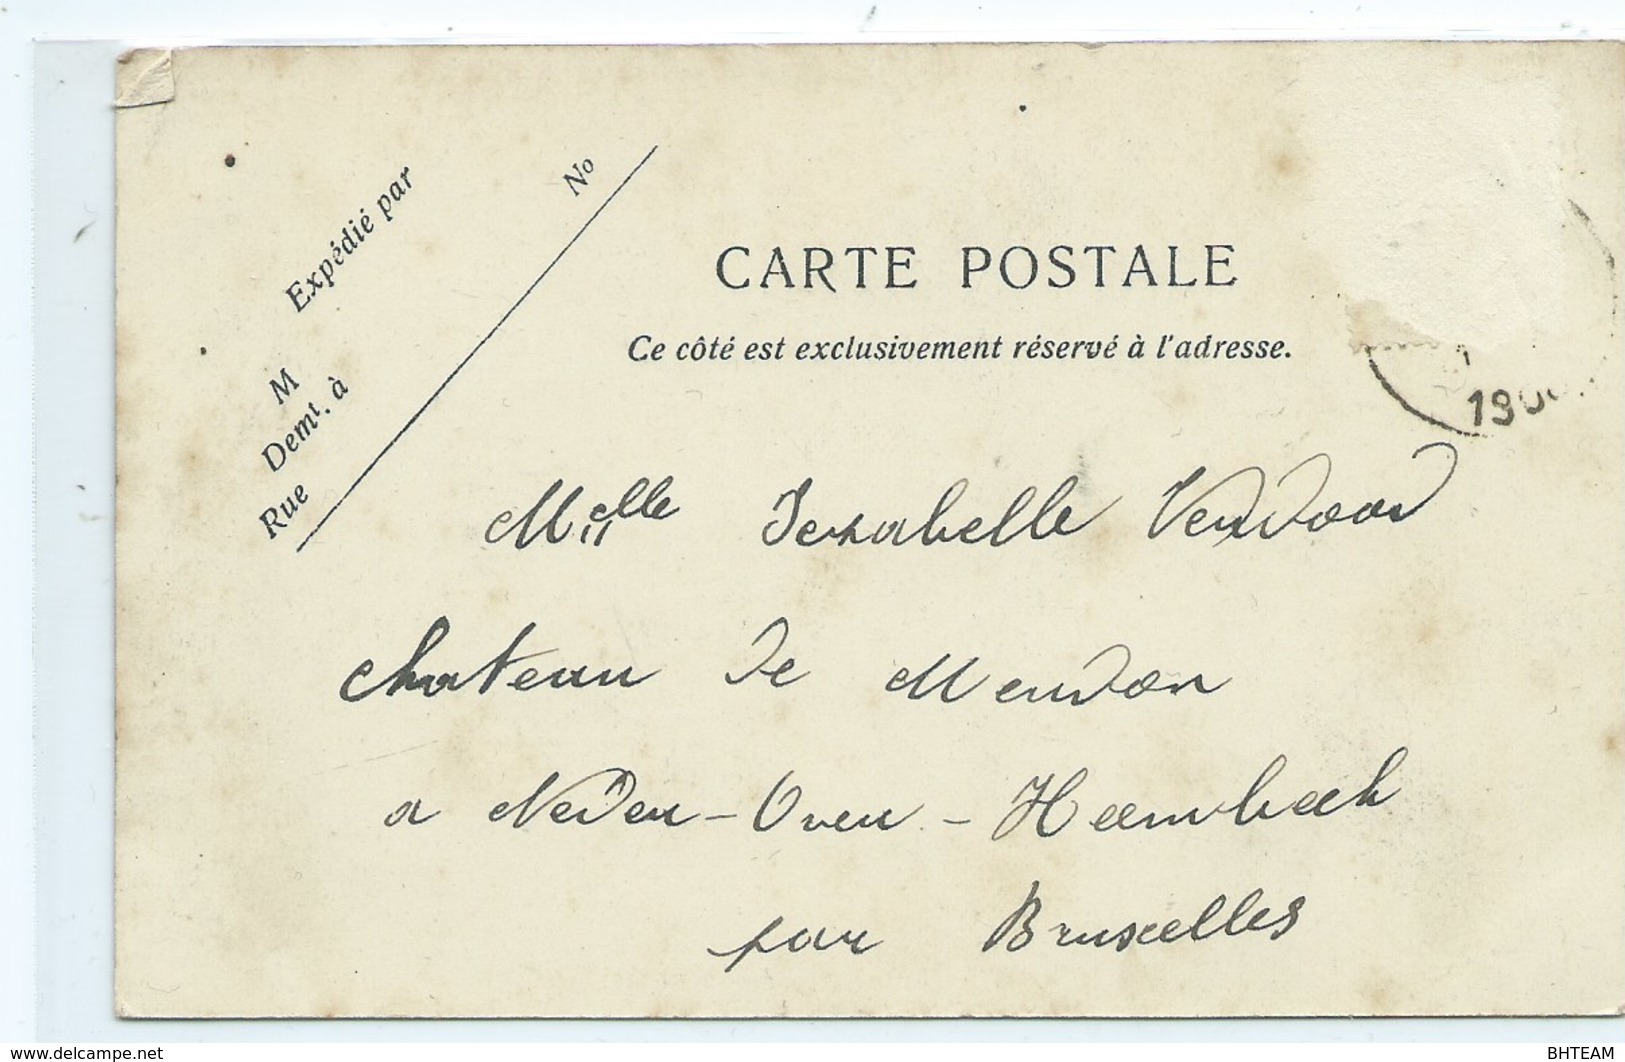 Expédié par
No
M
Demt. à
Rue
CARTE POSTALE
Ce côté est exclusivement réservé à l'adresse.
Melle
chateau de Meudon
a Neder-Over-Heembeek
par Bruxelles
www.delcampe.net
BHTEAM